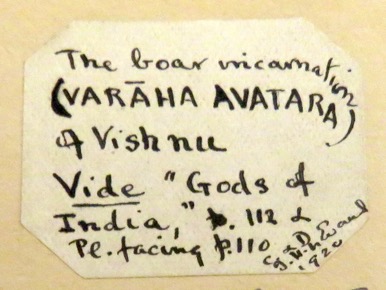 The boar incarnation
(VARĀHA AVATARA)
of Vishnu
Vide "Gods of
India," p. 112 &
Pl. facing p. 110
1920